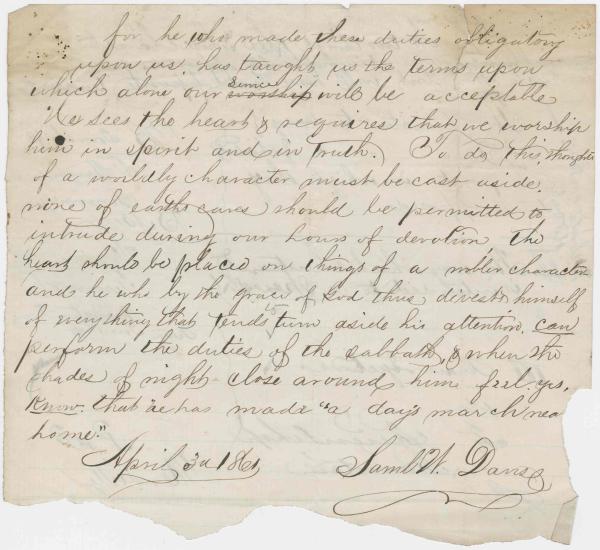 for he who made these duties obligatory
upon us has taught us the terms upon
which alone our service worship will be acceptable
He sees the heart & requires that we worship
him in spirit and in truth. To do this, thoughts
of a worldly character must be cast aside.
none of earths cares should be permitted to
intrude during our hours of devotion, the
heart should be placed on things of a nobler character
and he who by the grace of God thus divests himself
of everything that tends to turn aside his attention, can
perform the duties of the sabbath, & when the
shades of night close around him feel. yes,
Know. that he has made "a day's march nea
home."
April 3d 1861 Saml W. Davis